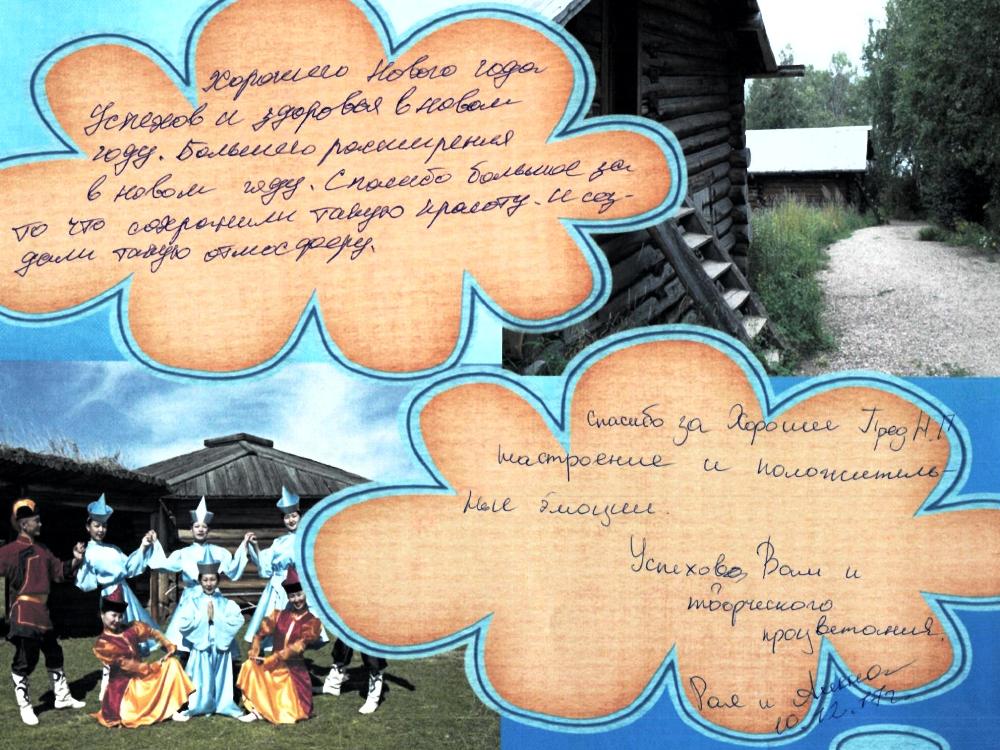 Хорошего Нового года
Успехов и здоровья в новом
году. Большего расширения
в новом году. Спасибо большое за
то что сохранили такую красоту. И соз-
дали такую атмосферу.
Спасибо за Хорошее Пред Н.Г
настроение и положитель-
ные эмоции.
Успехов Вам и
творческого
процветания.
Рая и
10.12.